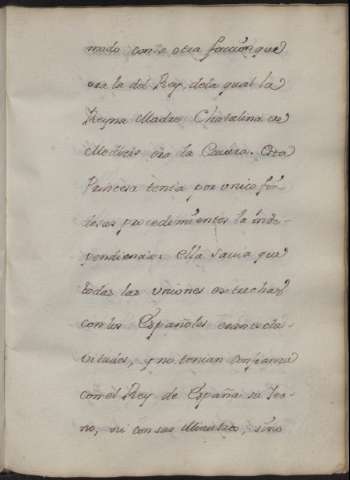 modo con la otra facción que
era la del Rey, dela qual la
Reyna Madre Chatalina de
Medicis era la Cavera. Esta
Princesa tenia por unico fin
desus procedimientos la inde-
pendiencia: ella savia que
todas las uniones estrechas
con los Españoles eran escla-
vitudes, y no tenian confianza
con el Rey de España su Ier-
no, ni con sus Ministros, sino